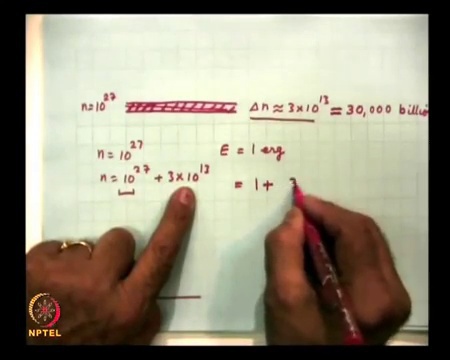 n=10^27 Δn ≈ 3×10^13 = 30,000 billi
n = 10^27 E = 1 erg
n = 10^27 + 3×10^13 = 1 +
NPTEL